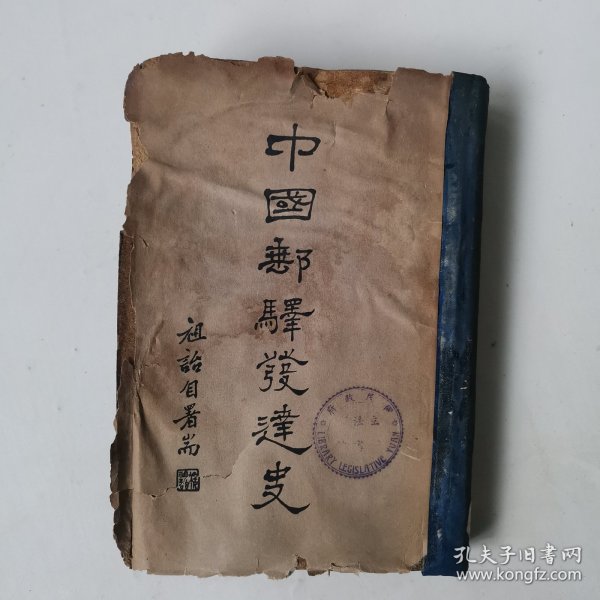 中國郵驛發達史
祖詒自署耑
LIBRARY LEGISLATIVE YUAN
孔夫子旧書网
www.kongfz.com